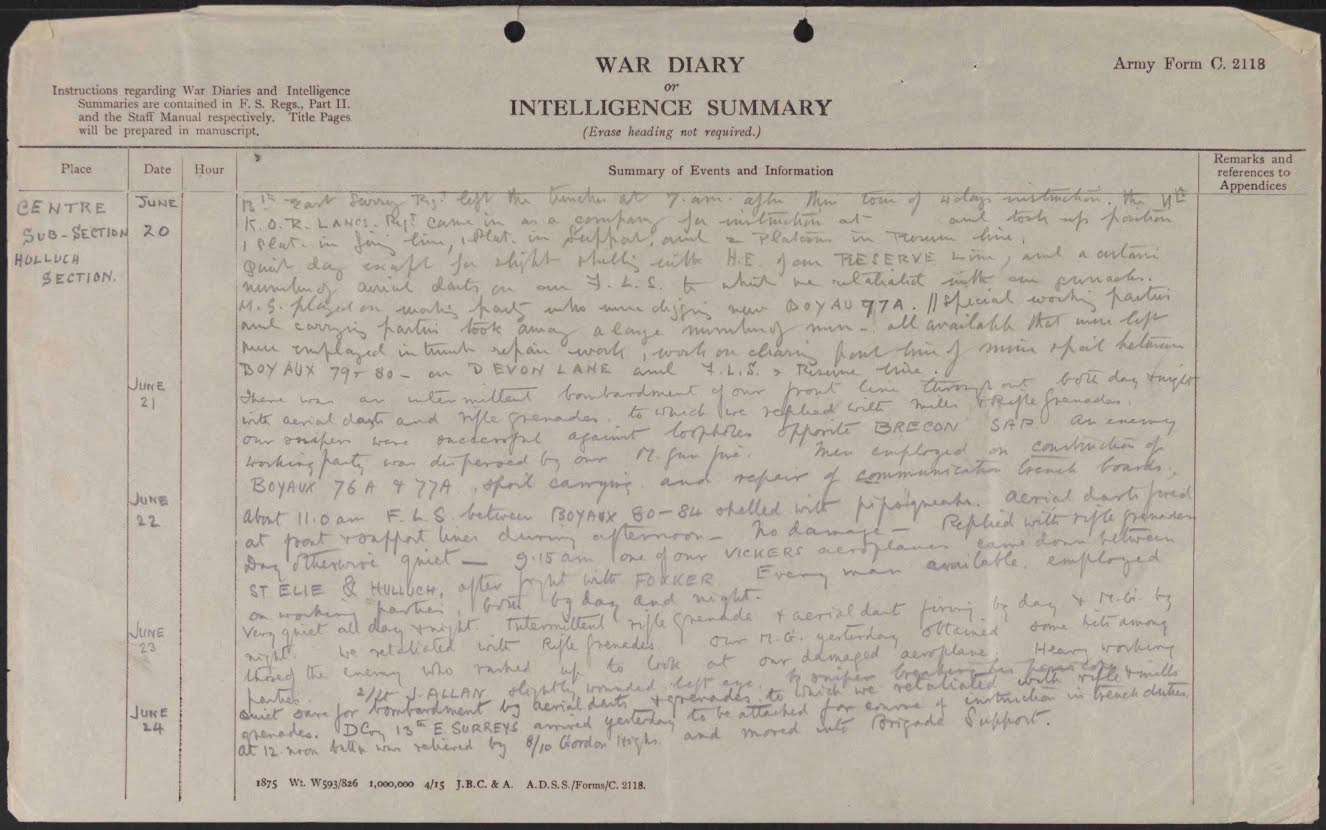 WAR DIARY
or
INTELLIGENCE SUMMARY
(Erase heading not required.)
Army Form C. 2118
Instructions regarding War Diaries and Intelligence
Summaries are contained in F. S. Regs., Part II.
and the Staff Manual respectively. Title Pages
will be prepared in manuscript.
Place
Date
Hour
Summary of Events and Information
Remarks and
references to
Appendices
CENTRE
SUB-SECTION
HULLUCH
SECTION.
JUNE
20
13th East Surrey Regt left the trenches at 7.am. after their tour of 4 days instruction. the 11th
K.O.R. LANCS. Regt came in as a company for instruction at and took up position
1 Plat. in firing line, 1 Plat. in Support, and 2 Platoons in Reserve line.
Quiet day except for slight shelling with H.E. of our RESERVE Line, and a certain
number of aerial darts on our F.L.S. to which we retaliated with our grenades.
M.G. played on working party who were digging new BOYAU 77A. // Special working parties
and carrying parties took away a large number of men - all available that were left
were employed in trench repair work, work on clearing front line of mine spoil between
BOYAUX 79 & 80 - on DEVON LANE and F.L.S. & Reserve line.
JUNE
21
There was an intermittent bombardment of our front line throughout both day & night
with aerial darts and rifle grenades. to which we replied with mills & Rifle grenades.
our snipers were successful against loopholes opposite BRECON SAP. An enemy
working party was dispersed by our M. Gun fire. Men employed on construction of
BOYAUX 76A & 77A, spoil carrying and repair of communication trench boards.
JUNE
22
About 11.0 am F.L.S. between BOYAUX 80-84 shelled with pipsqueaks. Aerial darts fired
at front & support lines during afternoon - No damage - Replied with rifle grenades
Day otherwise quiet - 9.15 am one of our VICKERS aeroplanes came down between
ST ELIE & HULLUCH, after fight with FOKKER. Every man available employed
on working parties, both by day and night.
JUNE
23
Very quiet all day & night. Intermittent rifle grenade & aerial dart firing by day & M.G. by
night. We retaliated with Rifle grenades. Our M.G. yesterday obtained some hits among
those of the enemy who rushed up to look at our damaged aeroplane. Heavy working
parties. 2/Lt J. ALLAN slightly wounded left eye by sniper breaking his periscope.
JUNE
24
Quiet save for bombardment by aerial darts & grenades to which we retaliated with rifle & mills
grenades. D Coy 13th E SURREYS arrived yesterday to be attached for course of instruction in trench duties.
At 12 noon battn was relieved by 8/10 Gordon Highs. and moved into Brigade Support.
1875 Wt. W593/826 1,000,000 4/15 J.B.C. & A. A.D.S.S./Forms/C. 2118.